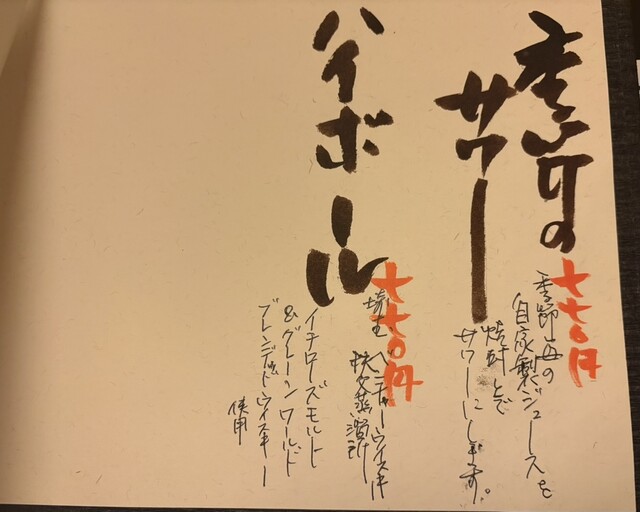 季節の
サワー
七七〇円
季節毎の
自家製ジュースを
焼酎とで
サワーにします。
ハイボール
七七〇円
埼玉 ベンチャーウイスキー
秩父蒸溜所
イチローズモルト
&グレーン ワールド
ブレンデッドウイスキー
使用